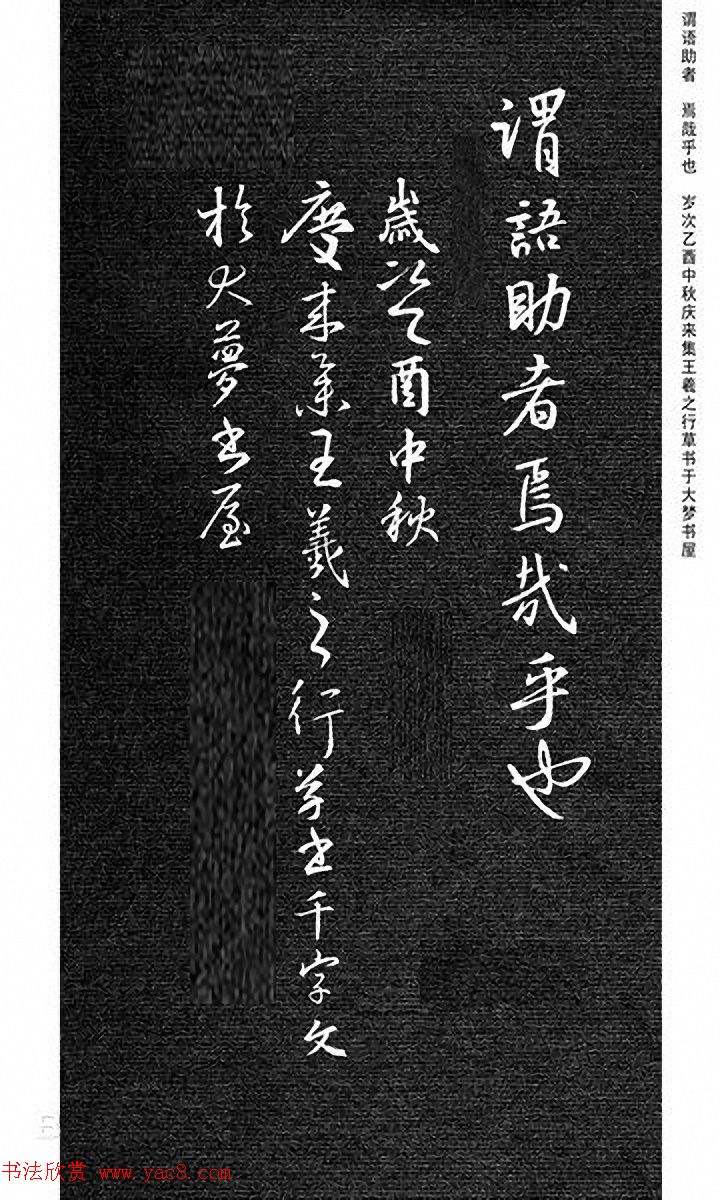 謂語助者焉哉乎也
歲次乙酉中秋
慶来集王羲之行草书千字文
於大夢书屋
谓语助者　焉哉乎也　岁次乙酉中秋庆来集王羲之行草书于大梦书屋
书法欣赏 www.yac8.com